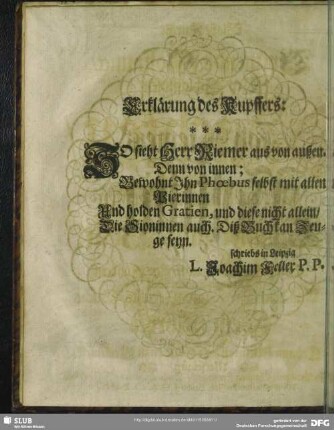 Erklärung des Kupffers:
* * *
SO sieht Herr Riemer aus von aussen.
Denn von innen;
Bewohnt Ihn Phœbus selbst mit allen
Pierinnen
Und holden Gratien, und diese nicht allein/
Die Sioninnen auch. Diß Buch kan Zeu-
ge seyn.
schriebs in Leipzig
L. Joachim Feller P. P.
SLUB
Wir führen Wissen.
gefördert von der
Deutschen Forschungsgemeinschaft
DFG